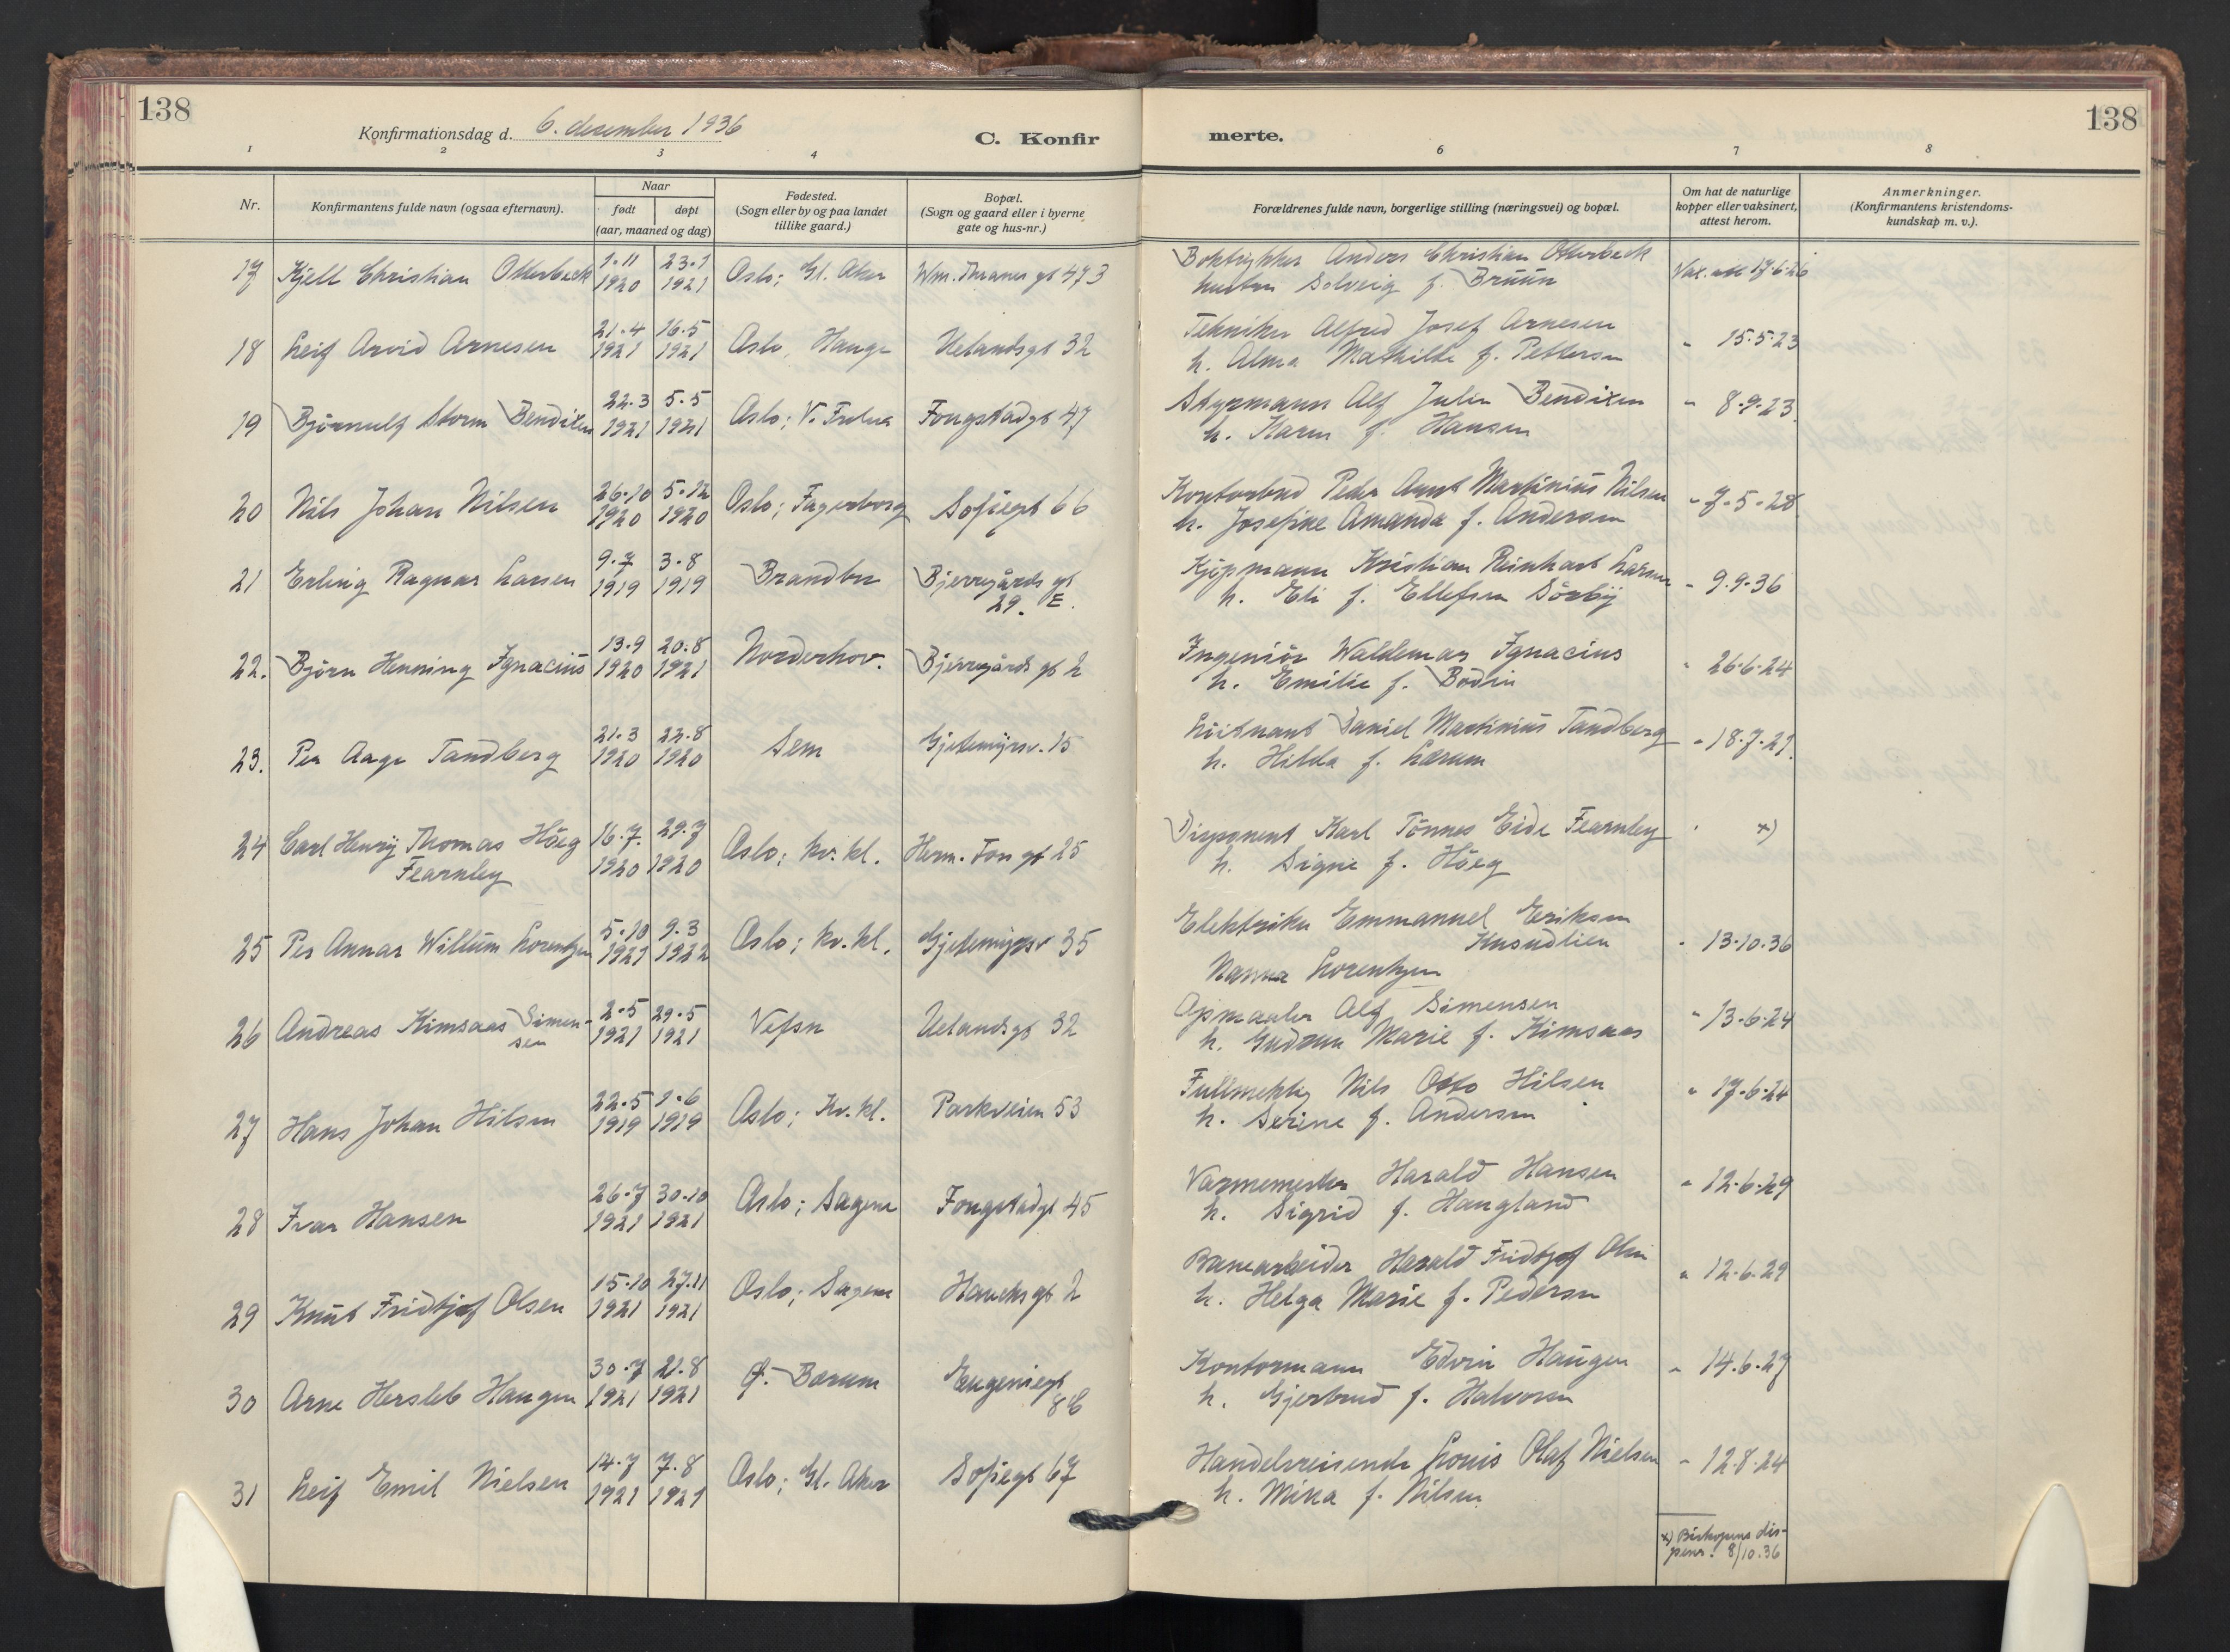 138
Konfirmationsdag d. 6. desember 1936
C. Konfir
merte.
138
1 2 3 4 6 7 8
Nr.
Konfirmantens fulde navn (ogsaa efternavn).
Naar
født døpt
(aar, maaned og dag)
Fødested.
(Sogn eller by og paa landet
tillike gaard.)
Bopæl.
(Sogn og gaard eller i byerne
gate og hus-nr.)
Forældrenes fulde navn, borgerlige stilling (næringsvei) og bopæl.
Om hat de naturlige
kopper eller vaksinert,
attest herom.
Anmerkninger.
(Konfirmantens kristendoms-
kundskap m. v.).
17 Kjell Christian Otterbeck 1.11 1920 23.1 1921 Oslo; Gl. Aker Wm. Thranes gt 47 3
Boktrykker Anders Christian Otterbeck
hustru Solveig f. Bruun
Vax. att 17.6.26
18 Leif Arvid Arnesen 21.4 1921 16.5 1921 Oslo, Hauge Uelandsgt 32
Tekniker Alfred Josef Arnesen
h. Alma Mathilde f. Pettersen
" 15.5.23
19 Bjørnulf Storm Bendixen 22.3 1921 5.5 1921 Oslo; V. Frelsers Fougstadgt 47
Styrmann Alf Julin Bendixen
h. Karen f. Hansen
" 8.9.23.
20 Nils Johan Nilsen 26.10 1920 5.12 1920 Oslo; Fagerborg Sofiegt 66
Kontorbud Peder Arnt Martinius Nilsen
h. Josefine Amanda f. Andersen
" 7.5.28
21 Erling Ragnar Larsen 9.7 1919 3.8 1919 Brandbu Bjerregårds gt
29. E.
Kjøpmann Kristian Reinhart Larsen
h. Eli f. Ellefsen Sørby
" 9.9.36
22. Bjørn Henning Ignacius 13.9 1920 20.8 1921 Norderhov. Bjerregårds gt 2
Ingeniør Waldemar Ignacius
h. Emilie f. Bodin
" 26.6.24
23. Per Aage Tandberg 21.3 1920 22.8 1920 Sem Gjetemyrsv. 15
Løitnant Daniel Martinius Tandberg
h. Hilda f. Lærum
" 18.7.21.
24 Carl Henry Thomas Høeg
Fearnley 16.7. 1920 29.7 1920 Oslo; Kv. kl. Herm. Foss gt 25
Disponent Karl Tønnes Eide Fearnley
h. Signe f. Höeg
" x)
25 Per Annar Willum Lorentzen 5.10 1921 9.3 1922 Oslo; Kv. kl. Gjetemyrsv 35
Elektriker Emmanuel Eriksen
Knsudlien
Nanna Lorentzen
" 13.10.36
26 Andreas Kimsaas Simen-
sen 2.5 1921 29.5 1921 Vefsn Uelandsgt 32
Opsmaaler Alf Simensen
h. Gudrun Marie f. Kimsaas
" 13.6.24
27 Hans Johan Hilsen 22.5 1919 1.6 1919 Oslo; Kv. kl. Parkveien 53
Fullmektig Nils Otto Hilsen
h. Serine f. Andersen
" 17.6.24
28 Ivar Hansen 26.7 1921 30.10 1921 Oslo; Sagene Fougstadgt 45
Varmemester Harald Hansen
h. Sigrid f. Haugland
" 12.6.29
29 Knut Fridtjof Olsen 15.10 1921 27.11 1921 Oslo; Sagene Hauchs gt 2
Banearbeider Harald Fridtjof Olsen
h. Helga Marie f. Pedersen
" 12.6.29
30 Arne Hersleb Haugen 30.7 1921 21.8 1921 Ø. Bærum Eugeniegt
8 C
Kontormann Edvin Haugen
h. Gjertrud f. Halvorsen
" 14.6.27
31 Leif Emil Nielsen 14.7 1921 7.8 1921 Oslo; Gl. Aker Sofiegt 67
Handelsreisende Louis Olaf Nielsen
h. Mina f. Nilsen
" 12.8.24
x) Biskopens dis-
pens. 8/10.36